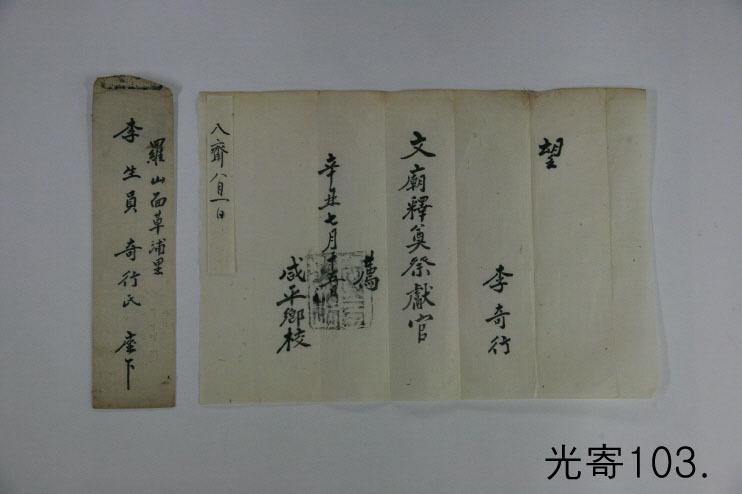 羅山面草浦里
李生員 奇行氏 座下
望
李奇行
文廟釋奠祭獻官
薦
辛丑七月十五日
咸平鄕校
入齋八月一日
光寄103.